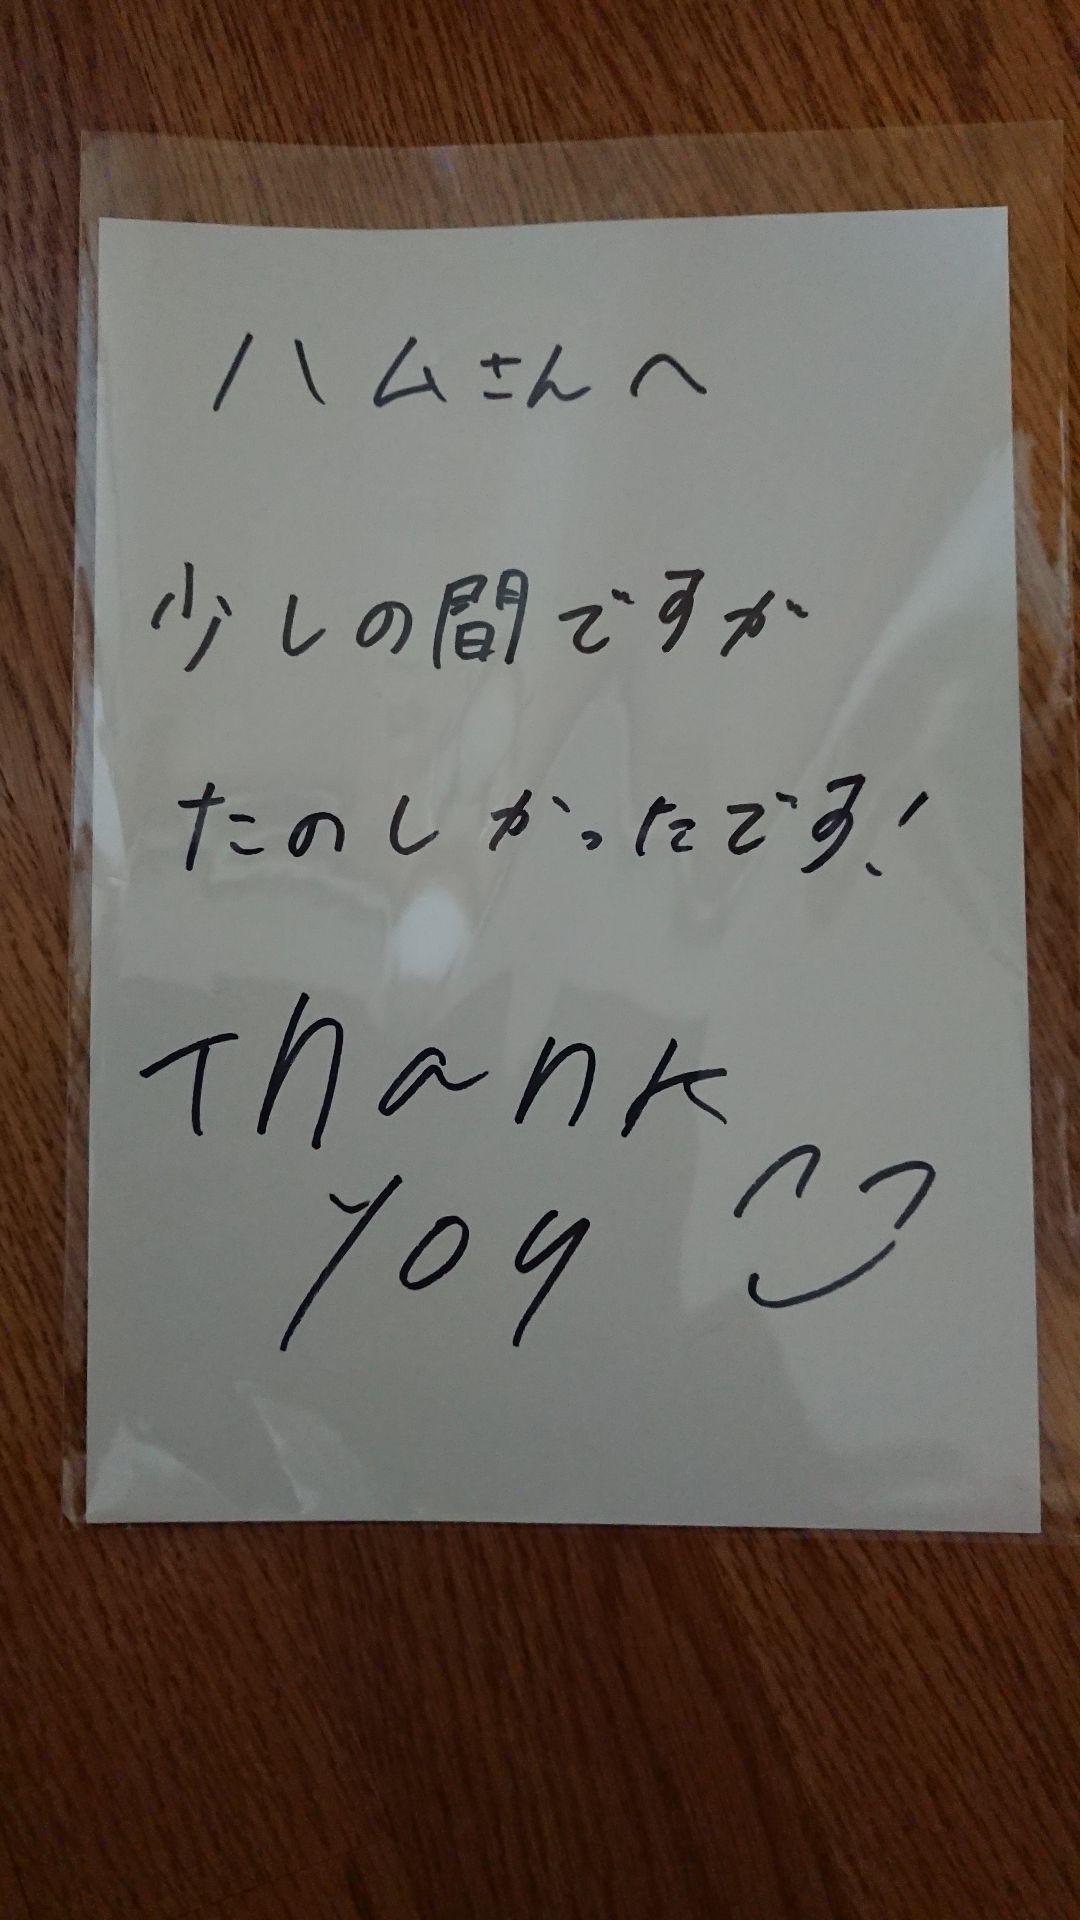 ハムさんへ
少しの間ですが
たのしかったです!
Thank
you